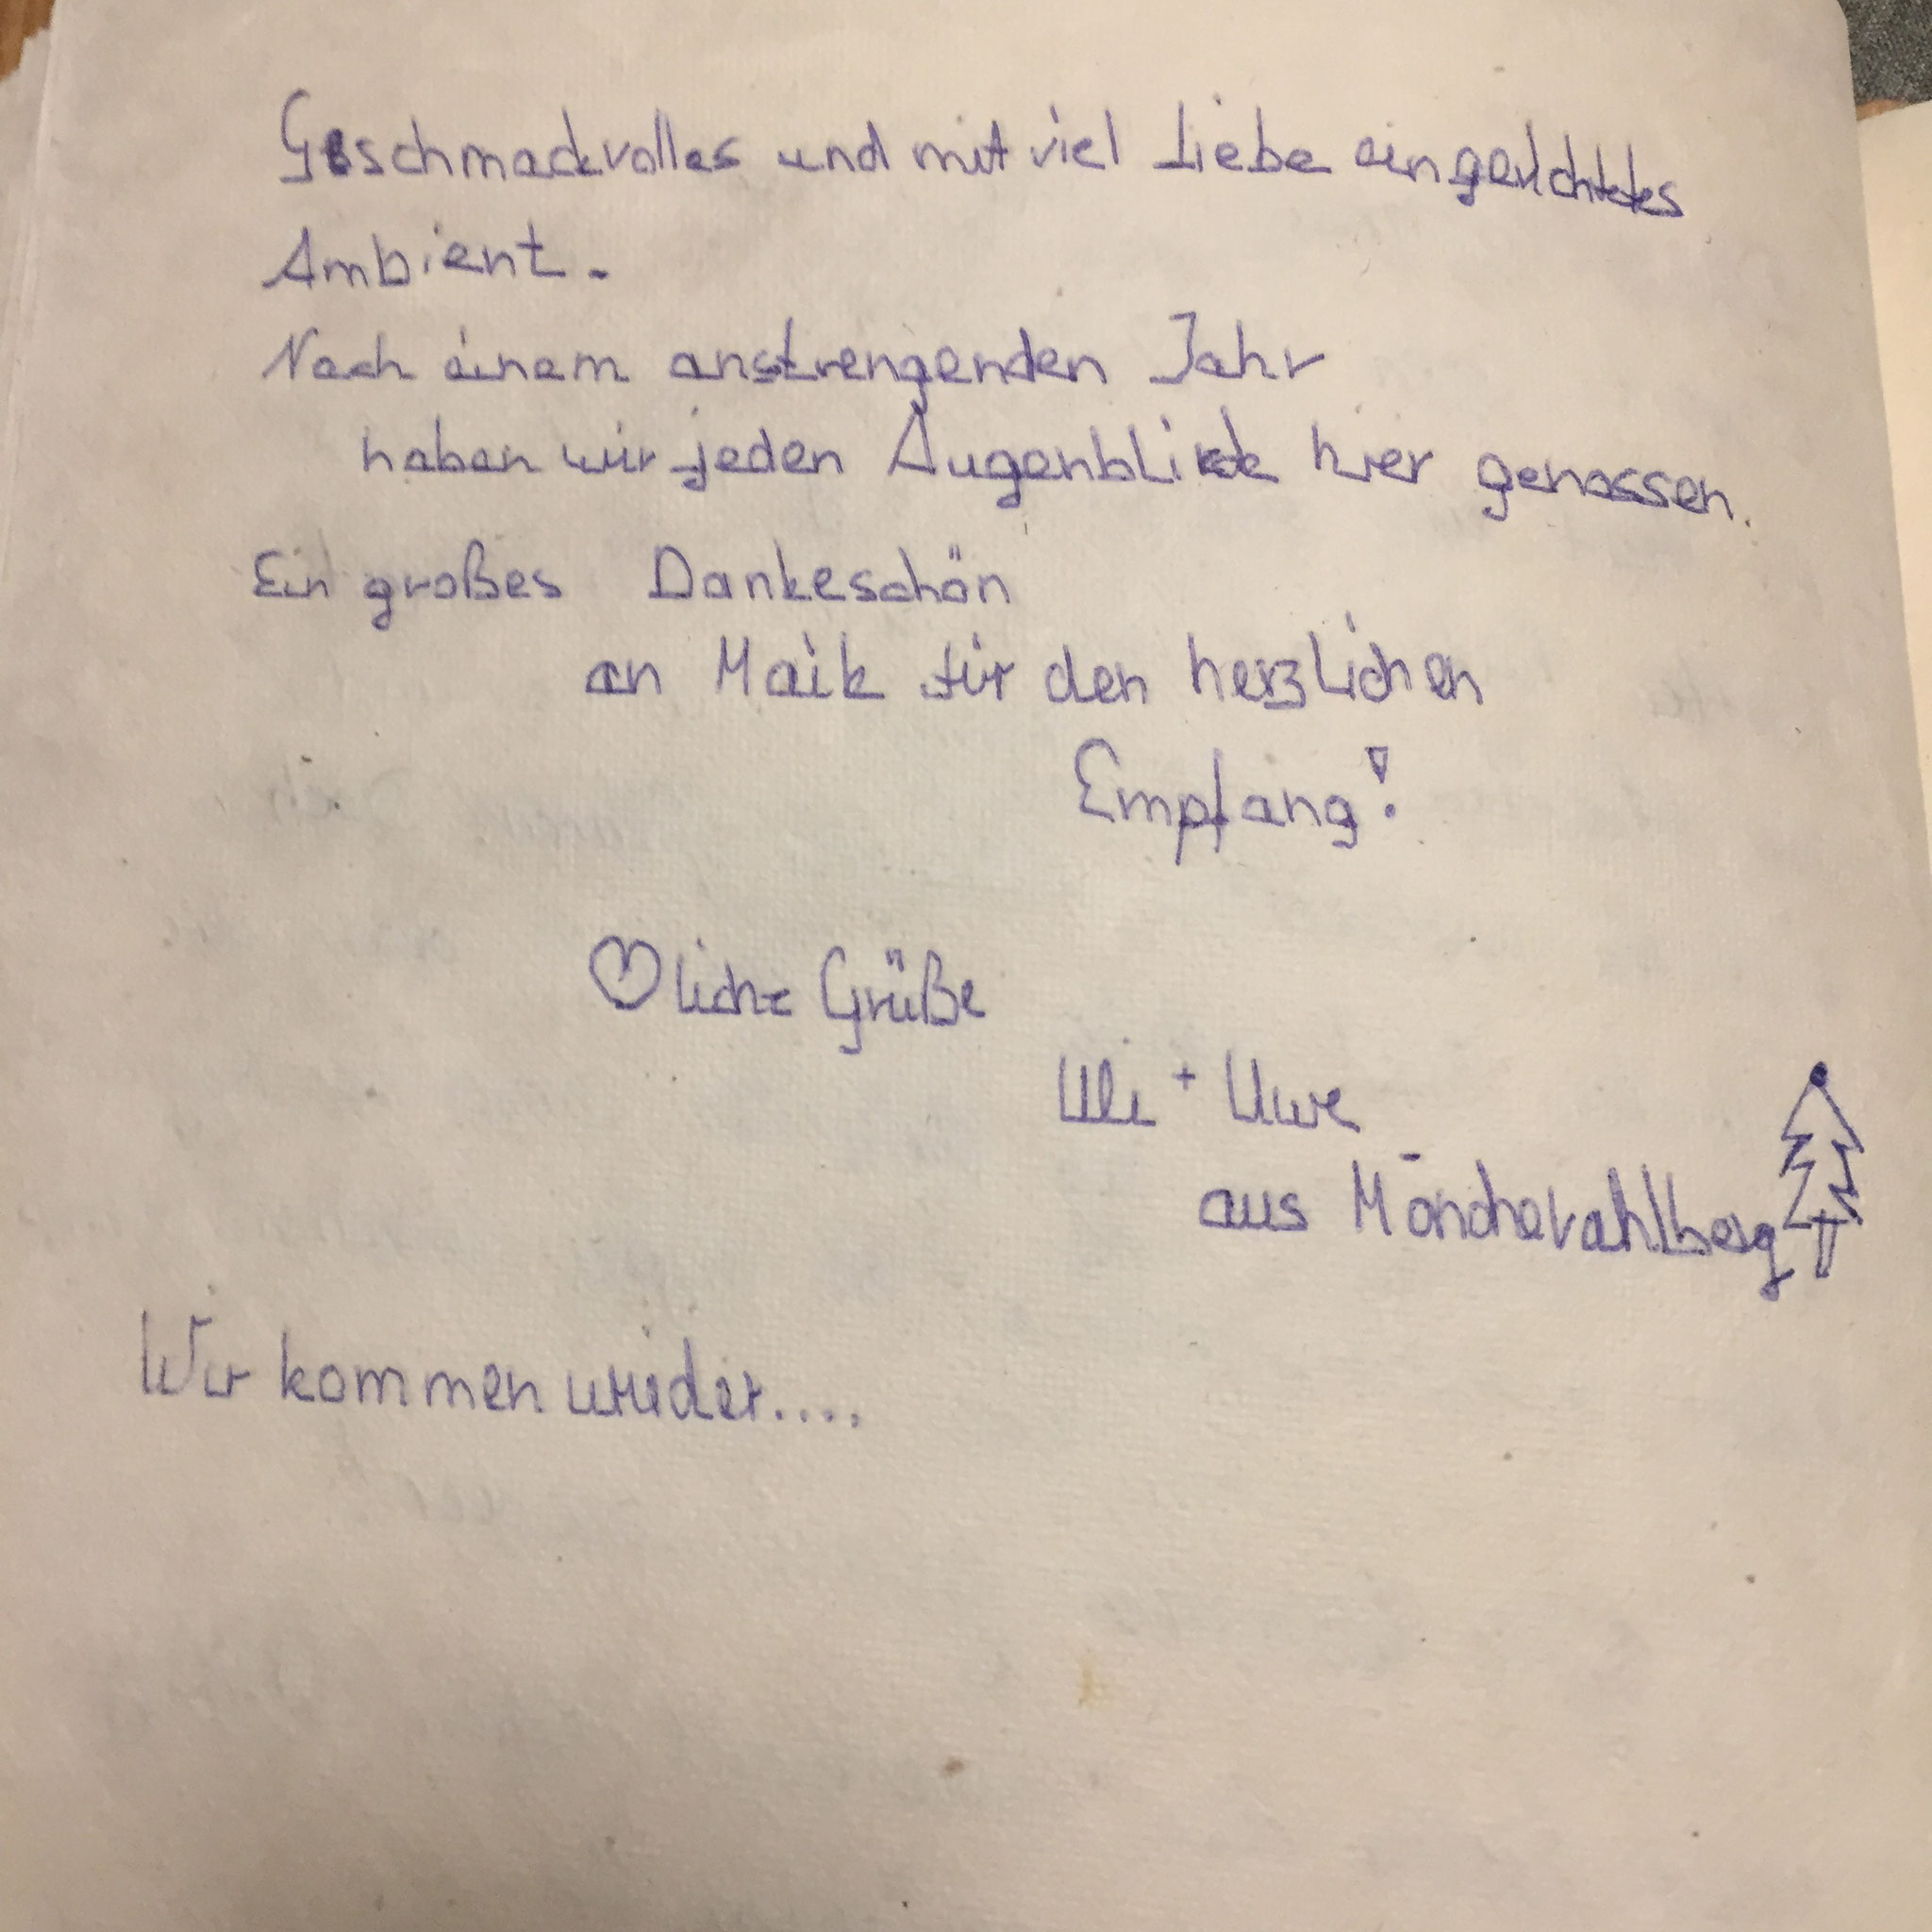 Geschmackvolles und mit viel Liebe eingerichtetes
Ambient.
Nach einem anstrengenden Jahr
haben wir jeden Augenblick hier genossen.
Ein großes Dankeschön
an Maik für den herzlichen
Empfang!
♡liche Grüße
Uli + Uwe
aus Mönchevahlberg
Wir kommen wieder....